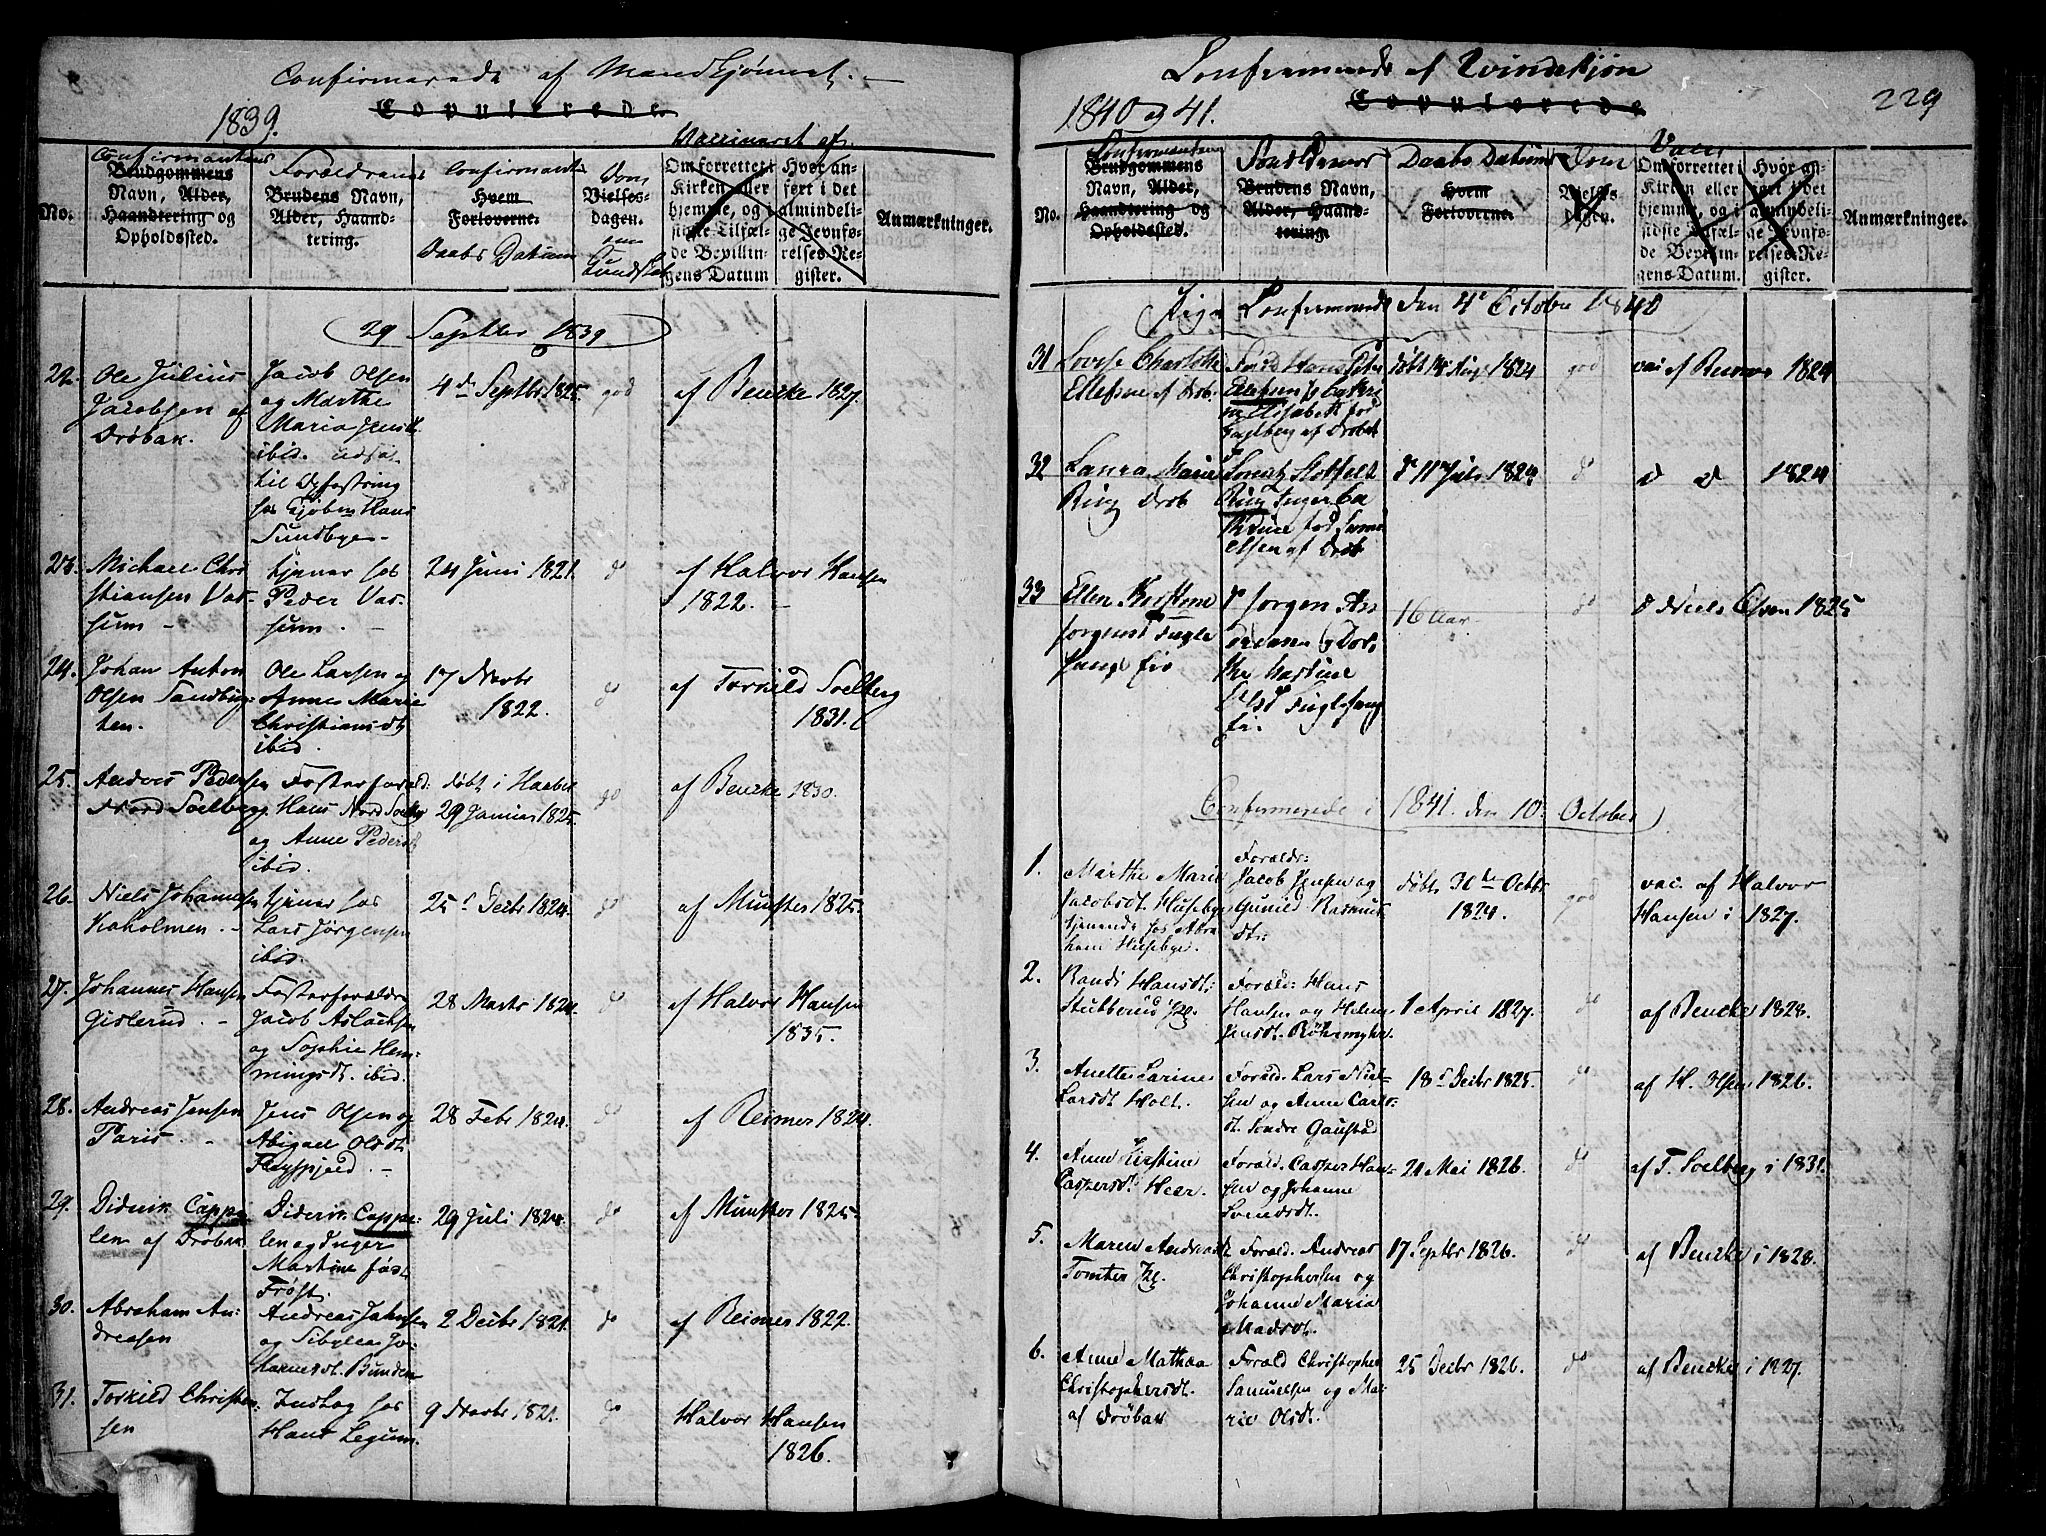 Confirmerede af Mandkjønnet. —
Copulerede.
1839.
Vaccineret af
No.
Confirmantens
Brudgommens
Navn, Alder,
Haandtering og
Opholdssted.
Forældrenes
Brudens Navn,
Alder, Haand-
tering.
Confirmant
Hvem
Forloverne.
Daabs Datum
Dom
Vielses-
dagen.
om
Kundskab
Om forrettet i
Kirken eller
hjemme, og i
sidste Tilfæl-
de Bevillin-
gens Datum
Hvor an-
ført i det
almindeli-
ge Jevnfø-
relses-Re-
gister.
Anmærkninger.
29 Septbr 1839
22. Ole Julius
Jacobsen af
Drøbak.
Jacob Olsen
og Marthe
Maria Jensdt.
ibid. udsat
til Opfostring
hos Hans
Sundbye
4de Septbr 1825. god af Bencke 1827.
23. Michael Chri-
stiansen Vas-
sum
tjener hos
Peder Vas-
sum.
24 Juni 1821. do af Halvor Hansen
1822.
24. Johan Anton
Olsen Sandbug-
ten.
Ole Larsen og
Anne Marie
Christiansdt
ibid.
17 Novbr
1822. do af Torkild Soelberg
1831.
25. Andreas Pedersen
Nord Soelberg.
Fosterforæld:
Hans Nord Soelberg
og Anne Pedersdt
ibid.
født i
29 Januar 1825. do af Bencke 1830.
26. Niels Johannesen
Kaholmen.
tjener hos
Lars Jørgensen
ibid.
25 Decbr 1824. do af Munster 1825.
27. Johannes Hansen
Gislerud.
Fosterforældre
Jacob Aslacksen
og Sophie Hem-
mingsdt. ibid.
28 Marts 1824. do af Halvor Hansen
1835.
28. Andreas Jensen
Paris.
Jens Olsen og
Abigael Olsdt
28 Febr 1824. do af Reimer 1824.
29. Diderik Cappe-
len af Drøbak
Diderik Cappe-
len og Inger
Martine født
Frøst.
29 Juli 1824. do af Munster 1825.
30. Abraham An-
dreasen
Andreas
og Sibylle Jo-
hannesdt.
2 Decbr 1821. do af Reimer 1822.
31. Torkild Christen-
sen
Indlog hos
Hans Legum.
9 Novbr 1821. do Halvor Hansen
1826.
Confirmerede af Qvindekjøn
Copulerede
229
1840 og 41.
No.
Confirmantens
Brudgommens
Navn, Alder,
Haandtering og
Opholdssted.
Forældrenes
Brudens Navn,
Alder, Haand-
tering.
Daabs Datum
Hvem
Forloverne.
Dom
Vielses-
dagen.
Vacc
Om forrettet i
Kirken eller
hjemme, og i
sidste Tilfæl-
de Bevillin-
gens Datum.
Hvor an-
ført i det
almindeli-
ge Jevnfø-
relses-Re-
gister.
Anmærkninger.
Piger Confirmerede den 4de October 1840
31 Lovise Charlotte
Ellefsen af Drøb.
Hans Peter
Ellefsen
Elisabeth fød
af Drøbak
født 18 Aug 1824 god vac af Reimer 1824
32 Laura Marie
Ring Drøb
Ring Inger Ca
fød
af Drøb
do 11 Juli 1824 do d d 1824
33 Ellen Kirstine
Jørgensd Fugle
sang
do Jørgen An
og Dor.
the Martine
Fuglesang
16 Aar. do d Niels Elven 1825
Confirmerede i 1841. den 10. October
1. Marthe Marie
Jacobsdt. Huseby
tjenende hos Abra
ham Husebye.
Forældr:
Jacob Jensen og
Gunild Rasmus
dt:
født 30te Octbr
1824. god vac. af Halvor
Hansen i 1827.
2. Randi Hansdt:
Stubberud
Foræld: Hans
Hansen og Helene
Jensdt. Røhrmyhr.
1 April 1827. do af Bencke 1828.
3. Anette Larine
Larsdt Holt.
Foræld: Lars Niel-
sen og Anne Carls-
dt. Søndre Gaustad
18 Decbr 1825. do af H. Olsen 1826.
4. Anne Kirstine
Caspersdt. Heer.
Foræld. Casper Han-
sen og Johanne
Svendsdt.
21 Mai 1826. do af T. Soelberg i 1831.
5. Maren Andreasdt
Tomter
Foræld. Andreas
Christophersen og
Johanne Maria
Madsdt.
17 Septbr 1826. do af Bencke i 1828.
6. Anne Mathea
Christophersdt.
af Drøbak
Foræld Christopher
Samuelsen og Ma-
rie Olsdt.
25 Decbr 1826. do af Bencke i 1827.